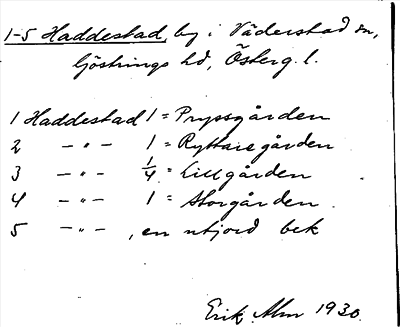 1-5 Haddestad, by i Väderstad sn,
Göstrings hd, Österg. l.
1 Haddestad 1 = Pryssgården
2 -"- 1 = Ryttaregården
3 -"- 1/4 = Lillgården
4 -"- 1 = Storgården
5 -"- , en utjord bek
Erik Alm 1930.